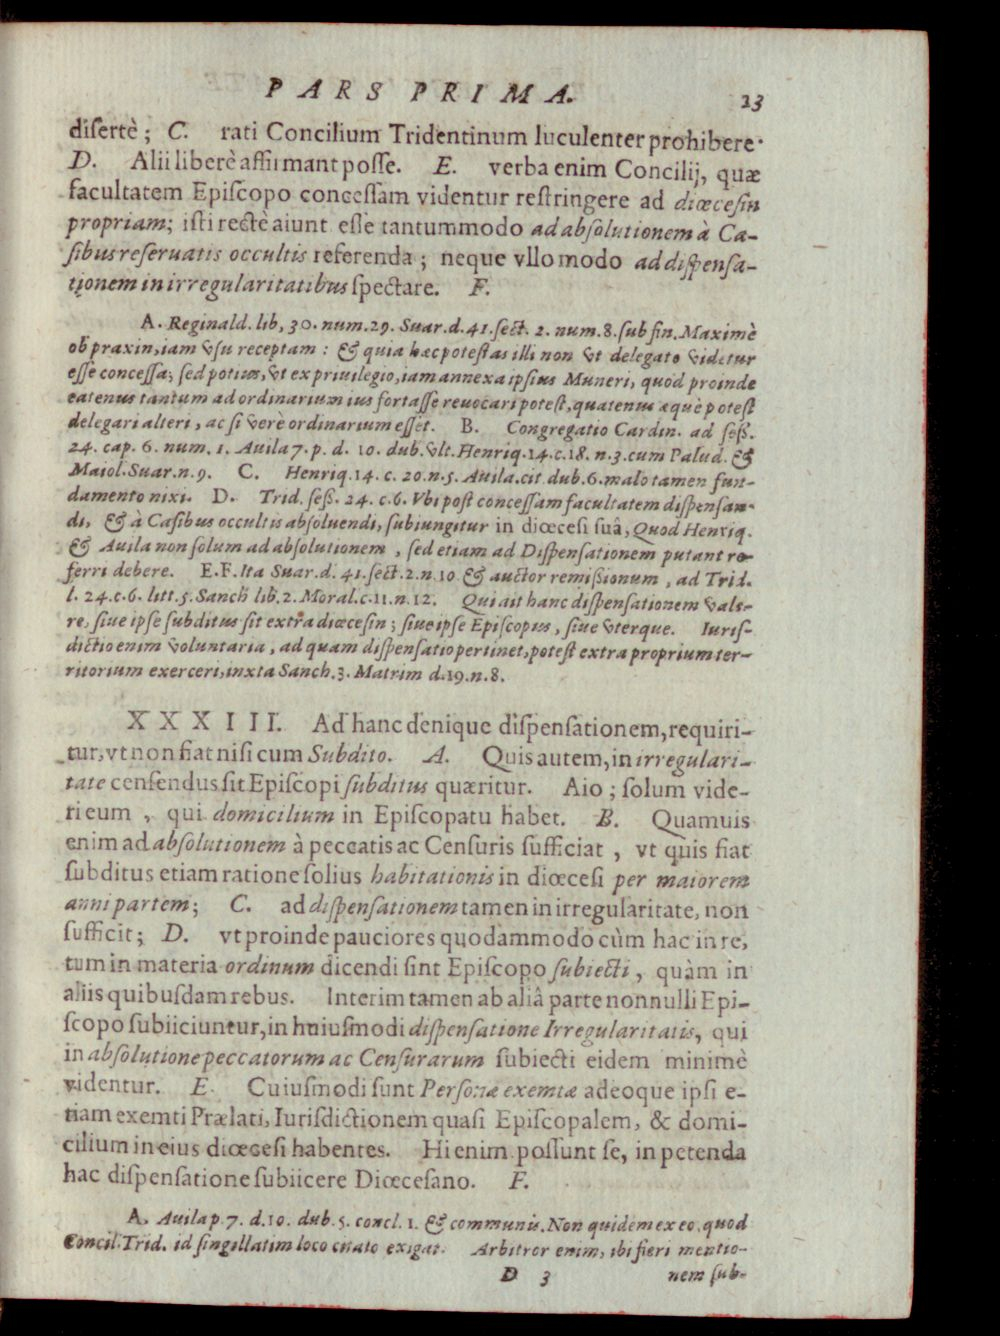 PARS PRIMA. 23
disertè; C. rati Concilium Tridentinum luculenter prohibere.
D. Alii liberè affirmant posse. E. verba enim Concilij, quæ
facultatem Episcopo concessam videntur restringere ad diœcesin
propriam; isti rectè aiunt esse tantummodo ad absolutionem à Ca-
sibus reseruatis occultis referenda; neque vllo modo ad dispensa-
tionem in irregularitatibus spectare. F.
A. Reginald. lib, 30. num. 29. Suar. d. 41. sect. 2. num. 8. sub fin. Maximè
ob praxin, iam vsu receptam: & quia hæc potestas illi non vt delegato videtur
esse concessa; sed potius, vt ex priuilegio, iam annexa ipsius Muneri, quod proinde
eatenus tantum ad ordinarium ius fortasse reuocari potest, quatenus æquè potest
delegari alteri, ac si verè ordinarium esset. B. Congregatio Cardin. ad sess.
24. cap. 6. num. 1. Auila 7. p. d. 10. dub. vlt. Henriq. 14. c. 18. n. 3. cum Palud. &
Maiol. Suar. n. 9. C. Henriq. 14. c. 20. n. 5. Auila. cit dub. 6. malo tamen fun-
damento nixi. D. Trid. sess. 24. c. 6. Vbi post concessam facultatem dispensan-
di, & à Casibus occultis absoluendi, subiungitur in diœcesi suâ, Quod Henriq.
& Auila non solum ad absolutionem, sed etiam ad Dispensationem putant re-
ferri debere. E. F. Ita Suar. d. 41. sect. 2. n. 10 & auctor remissionum, ad Trid.
l. 24. c. 6. litt. 5. Sanch lib. 2. Moral. c. 11. n. 12. Qui ait hanc dispensationem vale-
re, siue ipse subditus sit extra diœcesin; siue ipse Episcopus, siue vterque. Iuris-
dictio enim voluntaria, ad quam dispensatio pertinet, potest extra proprium ter-
ritorium exerceri, iuxta Sanch. 3. Matrim d. 19. n. 8.
XXXIII. Ad hanc denique dispensationem, requiri-
tur, vt non fiat nisi cum Subdito. A. Quis autem, in irregulari-
tate censendus sit Episcopi subditus quæritur. Aio; solum vide-
ri eum, qui domicilium in Episcopatu habet. B. Quamuis
enim ad absolutionem à peccatis ac Censuris sufficiat, vt quis fiat
subditus etiam ratione solius habitationis in diœcesi per maiorem
anni partem; C. ad dispensationem tamen in irregularitate, non
sufficit; D. vt proinde pauciores quodammodo cùm hac in re,
tum in materia ordinum dicendi sint Episcopo subiecti, quàm in
aliis quibusdam rebus. Interim tamen ab aliâ parte nonnulli Epi-
scopo subiiciuntur, in huiusmodi dispensatione Irregularitatis, qui
in absolutione peccatorum ac Censurarum subiecti eidem minimè
videntur. E. Cuiusmodi sunt Personæ exemtæ adeoque ipsi e-
tiam exemti Prælati, Iurisdictionem quasi Episcopalem, & domi-
cilium in eius diœcesi habentes. Hi enim possunt se, in petenda
hac dispensatione subiicere Diœcesano. F.
A. Auila p 7. d. 10. dub. 5. concl. 1. & communis. Non quidem ex eo, quod
Concil. Trid. id singillatim loco citato exigat. Arbitror enim, ibi fieri mentio-
D 3 nem sub-